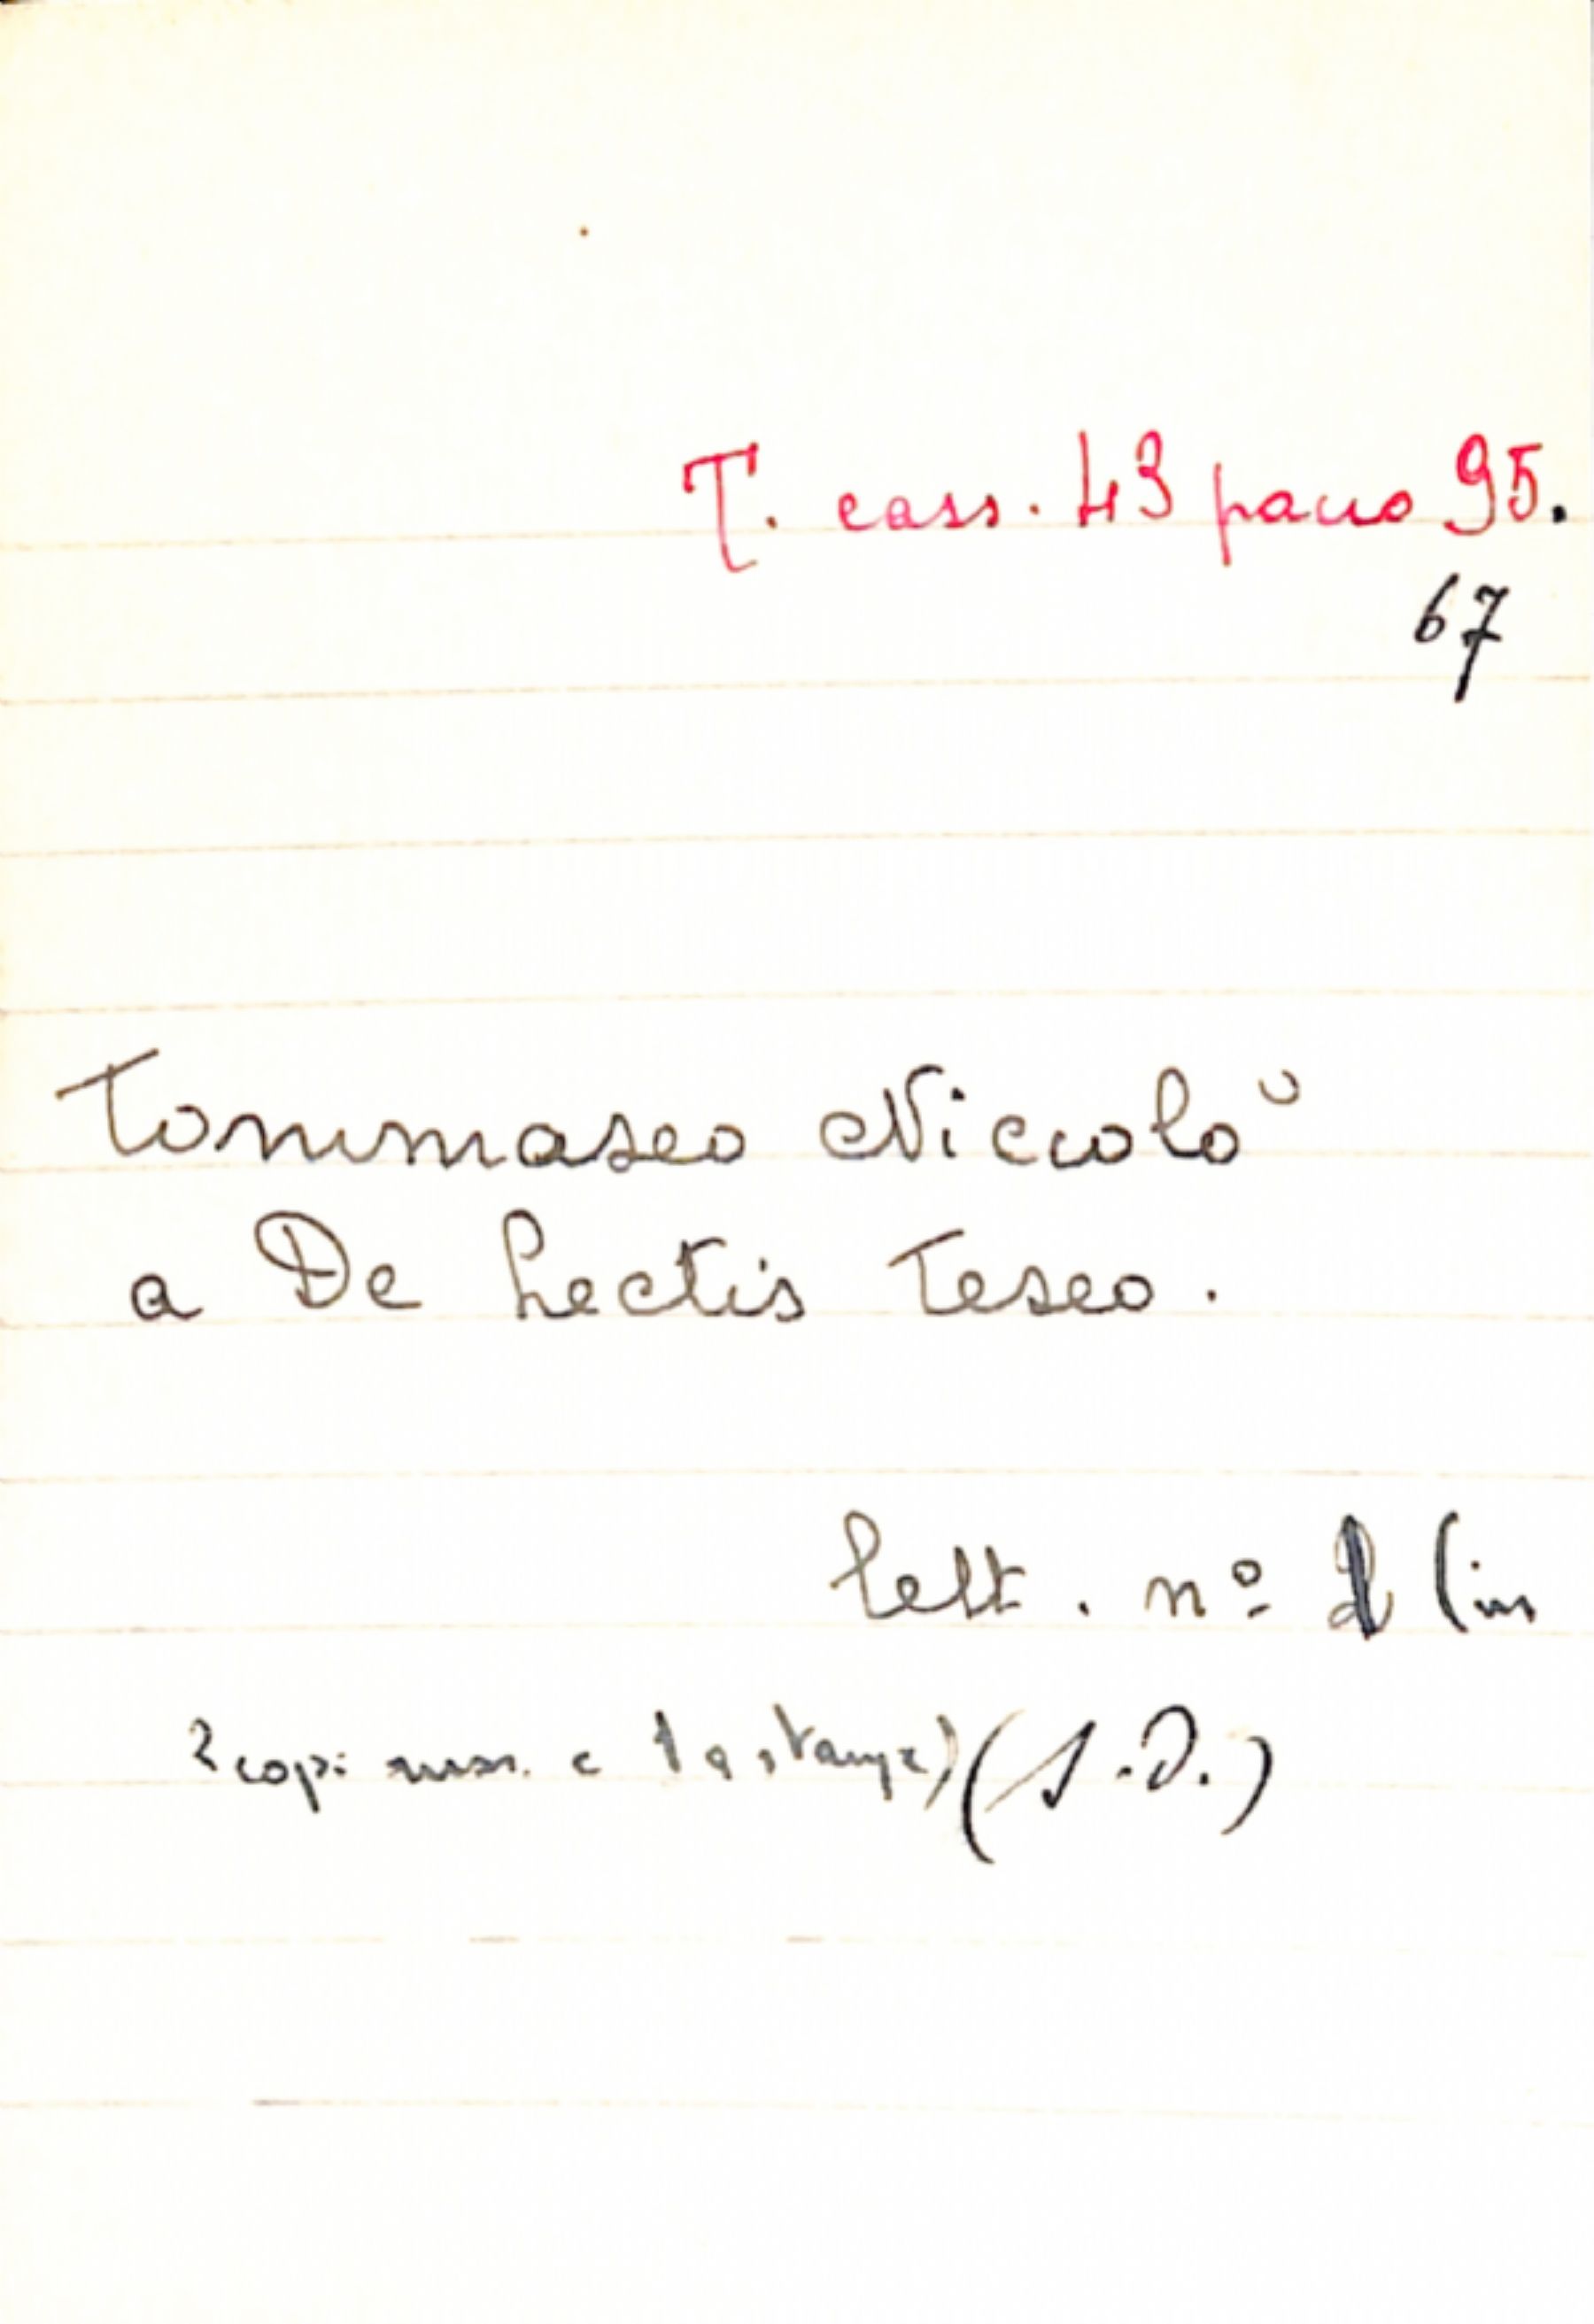 T. cass. 43 pacco 95.
67
Tommaseo Niccolò
a De Lectis Teseo.
Lett. nº 1 (in
2 copi mss. e 1 a stampa) (S.D.)